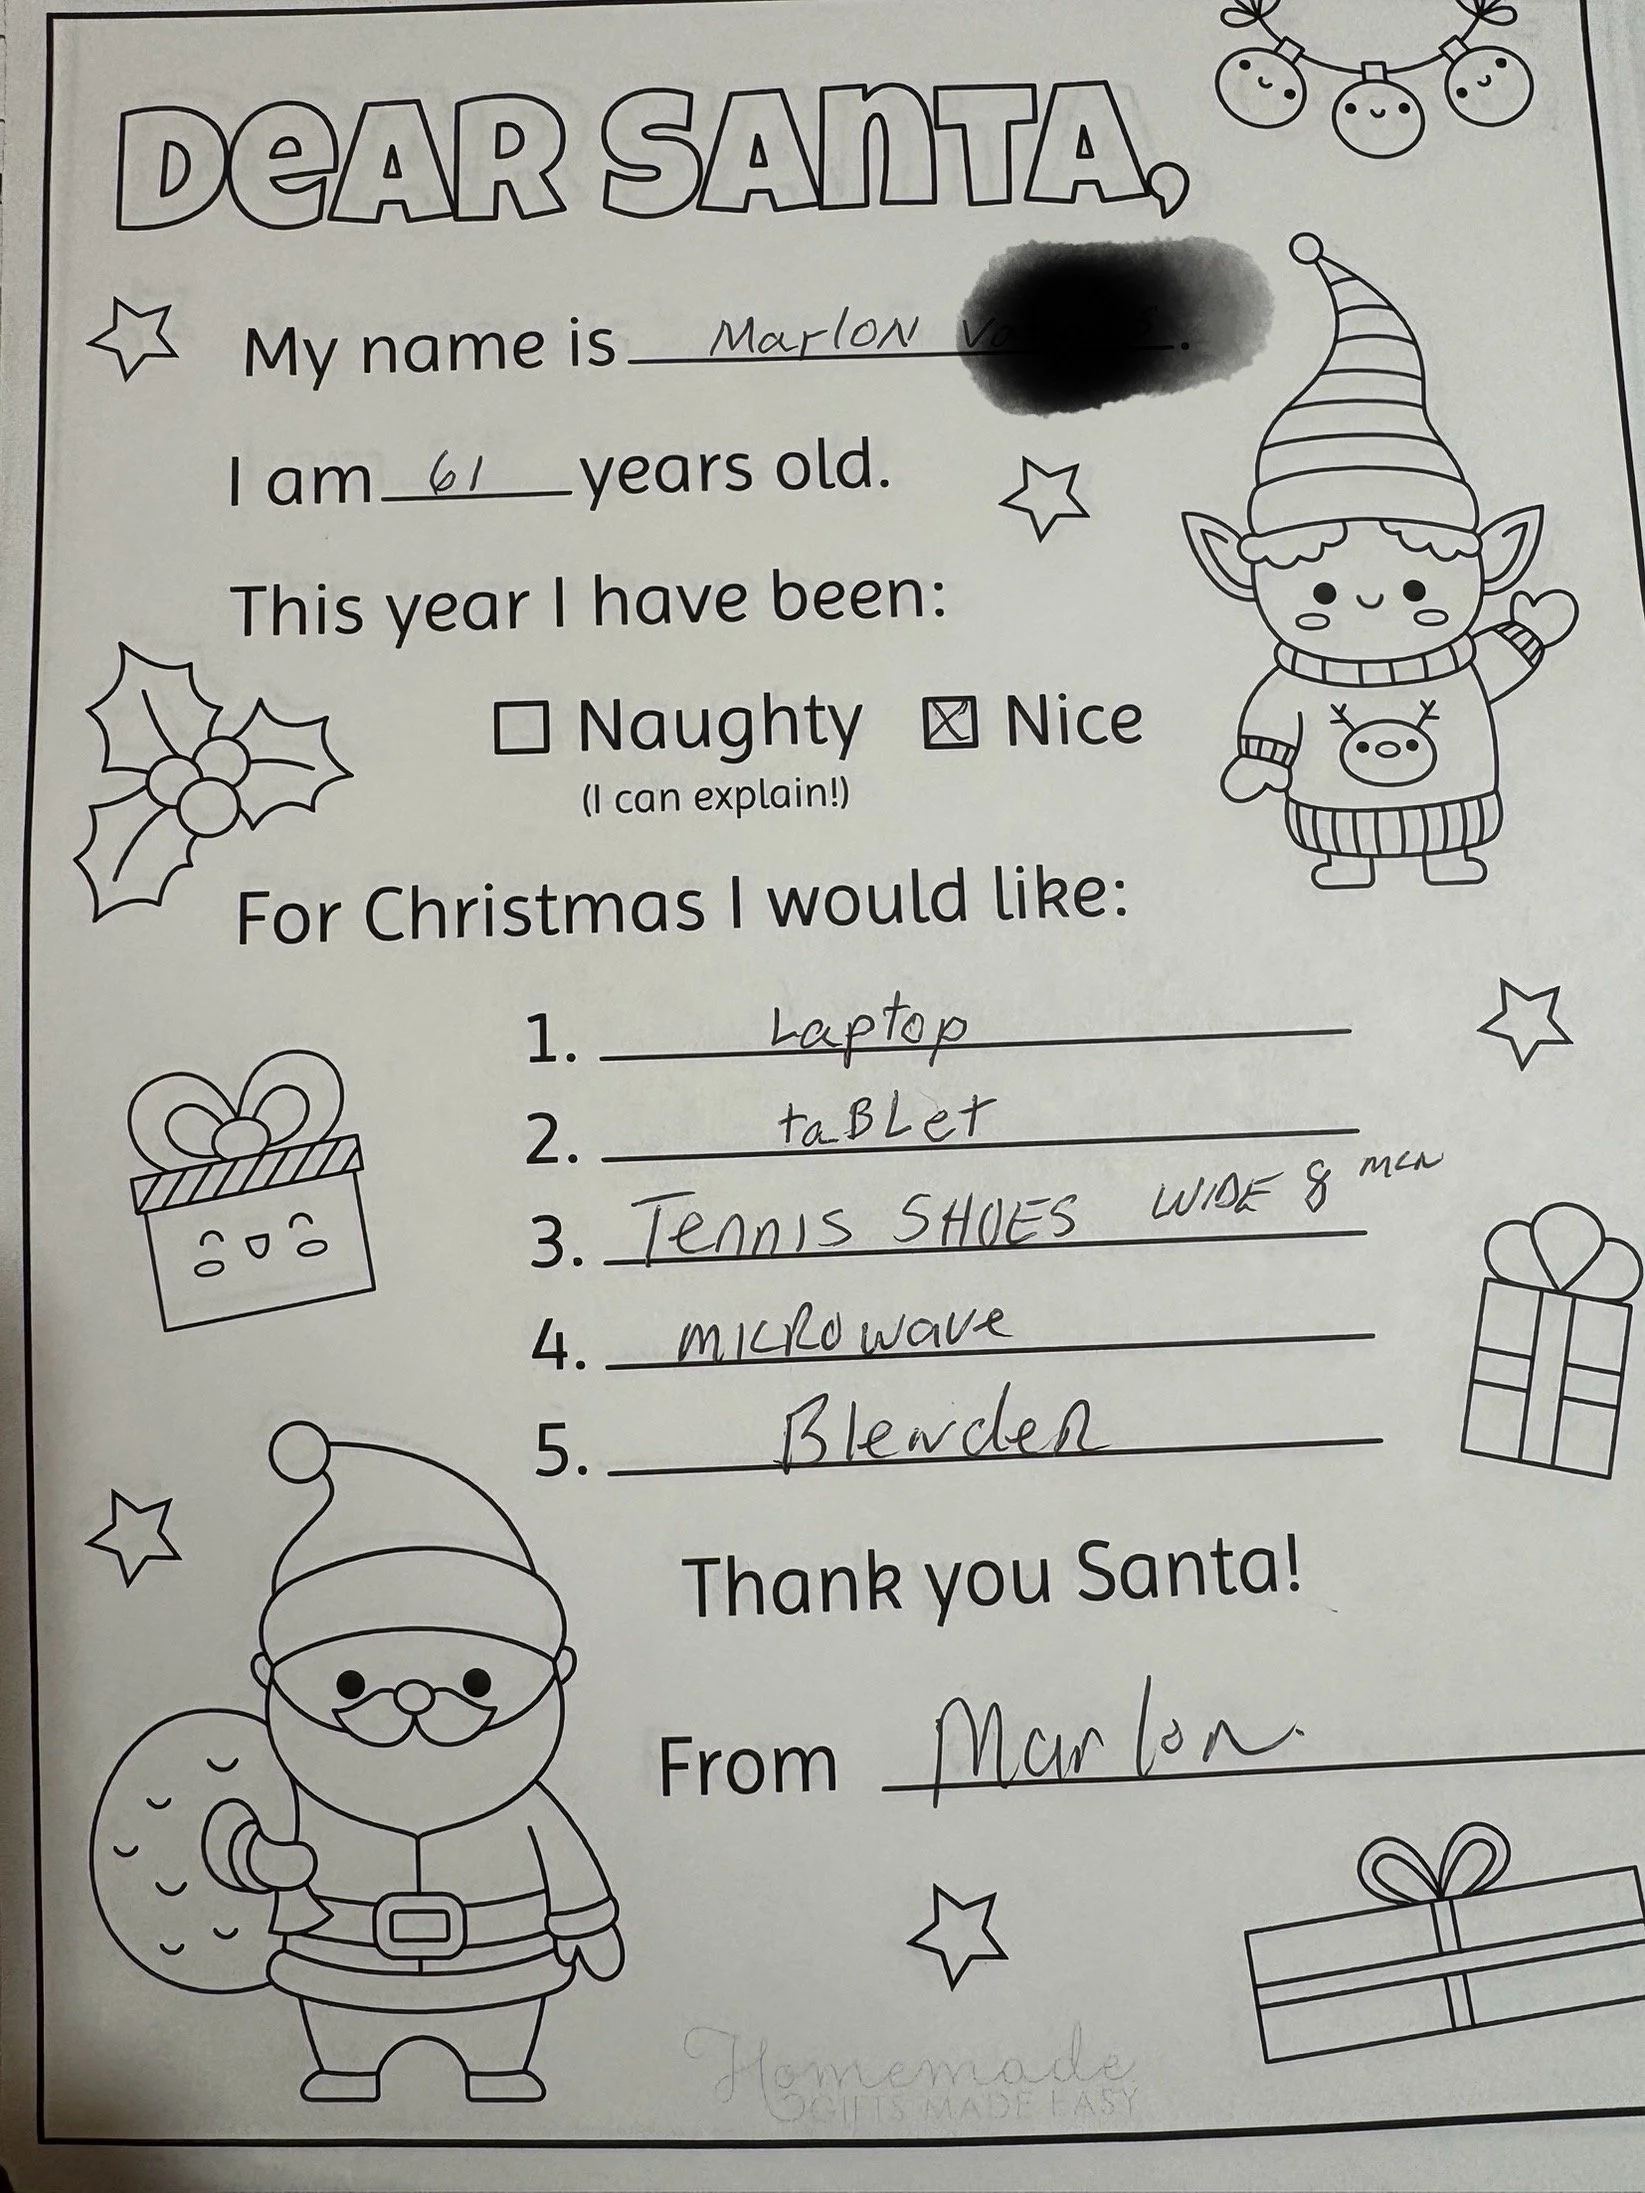 DeAR SAnTA,
My name is Marlon .
I am 61 years old.
This year I have been:
Naughty Nice
(I can explain!)
For Christmas I would like:
1. Laptop
2. taBLet
3. Tennis SHOES WIDE 8 men
4. mICRowave
5. BlendeR
Thank you Santa!
From Marlon
Homemade
GIFTS MADE EASY